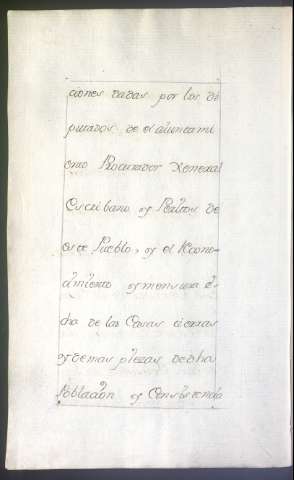 ciones dadas por los di
putados de el aiuntami
ento Procurador Xeneral
Escribano y Peritos de
este Pueblo, y el Rcono-
cimiento y mensura é
cha de las Casas tierras
y demas piezas de dha
Poblacion y